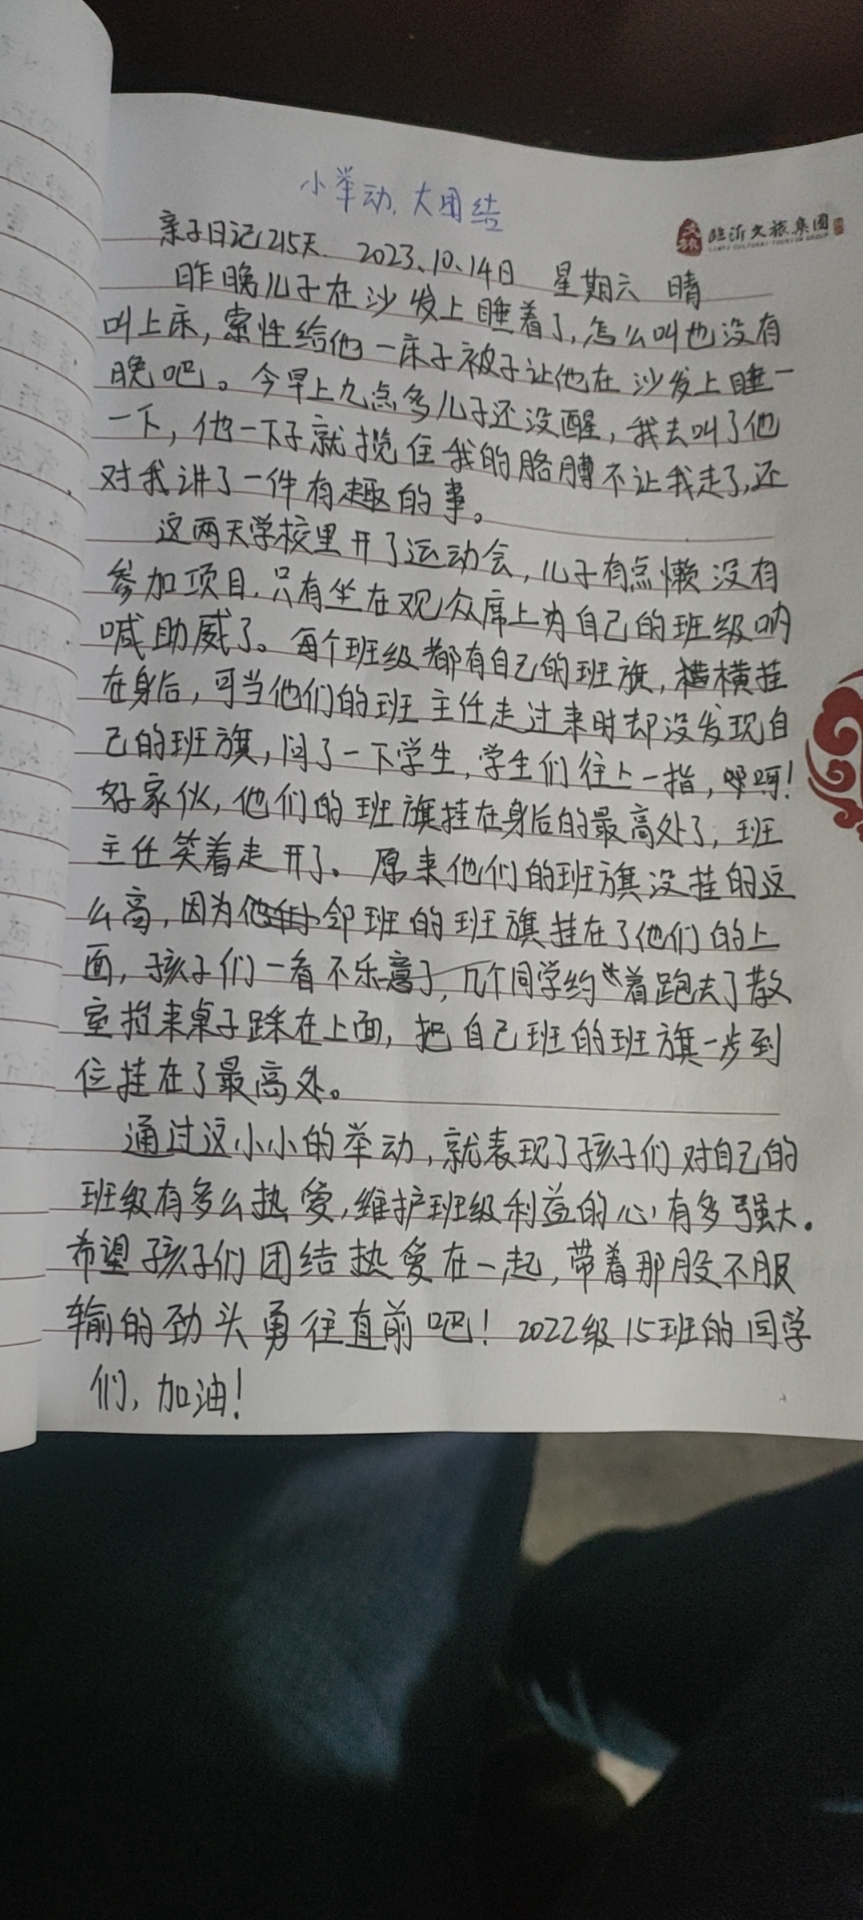 小举动.大团结
临沂文旅集团
亲子日记215天. 2023.10.14日 星期六 晴
昨晚儿子在沙发上睡着了,怎么叫也没有
叫上床,索性给他一床子被子让他在沙发上睡一
晚吧。今早上九点多儿子还没醒,我去叫了他
一下,他一下子就揽住我的胳膊不让我走了,还
对我讲了一件有趣的事。
这两天学校里开了运动会,儿子有点懒没有
参加项目.只有坐在观众席上为自己的班级呐
喊助威了。每个班级都有自己的班旗,横挂
在身后,可当他们的班主任走过来时却没发现自
己的班旗,问了一下学生,学生们往上一指,呵!
好家伙,他们的班旗挂在身后的最高处了,班
主任笑着走开了。原来他们的班旗没挂的这
么高,因为邻班的班旗挂在了他们的上
面,孩子们一看不乐意了,几个同学约着跑去了教
室抬来桌子踩在上面,把自己班的班旗一步到
位挂在了最高处。
通过这小小的举动,就表现了孩子们对自己的
班级有多么热爱,维护班级利益的心有多强大.
希望孩子们团结热爱在一起,带着那股不服
输的劲头勇往直前吧!2022级15班的同学
们,加油!